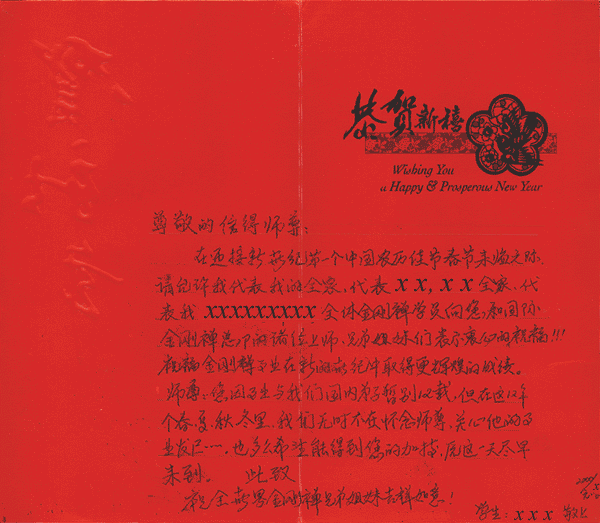 恭贺新禧
Wishing You
a Happy & Prosperous New Year
尊敬的信得师尊：
在迎接新世纪第一个中国农历佳节春节来临之际，
请允许我代表我的全家，代表 x x, x x 全家，代
表我 xxxxxxxxx 全体金刚禅学员向您和国际
金刚禅总部的诸位上师、兄弟姐妹们表示衷心的祝福!!!
祝福金刚禅事业在新的世纪中取得更辉煌的成绩。
师尊：您因事业与我们国内弟子暂别12载，但在这12年
个春、夏、秋、冬里，我们无时不在怀念师尊，关心他的事
业发展……，也多么希望能得到您的加持，愿这一天尽早
来到。 此致
祝全世界金刚禅兄弟姐妹吉祥如意！
学生：x x x 敬上